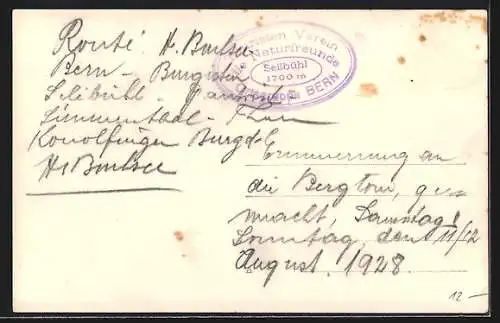 Route: H.
Bern – Burgistein
Selibühl –
Simmenthal – Thun
Konolfingen Burgdf.
Touristen Verein
Die Naturfreunde
Selibühl
1700 m
BERN
Erinnerung an
die Bergtour, ge-
macht, Samstag/
Sonntag, den 11/12
August. 1928.
12 –